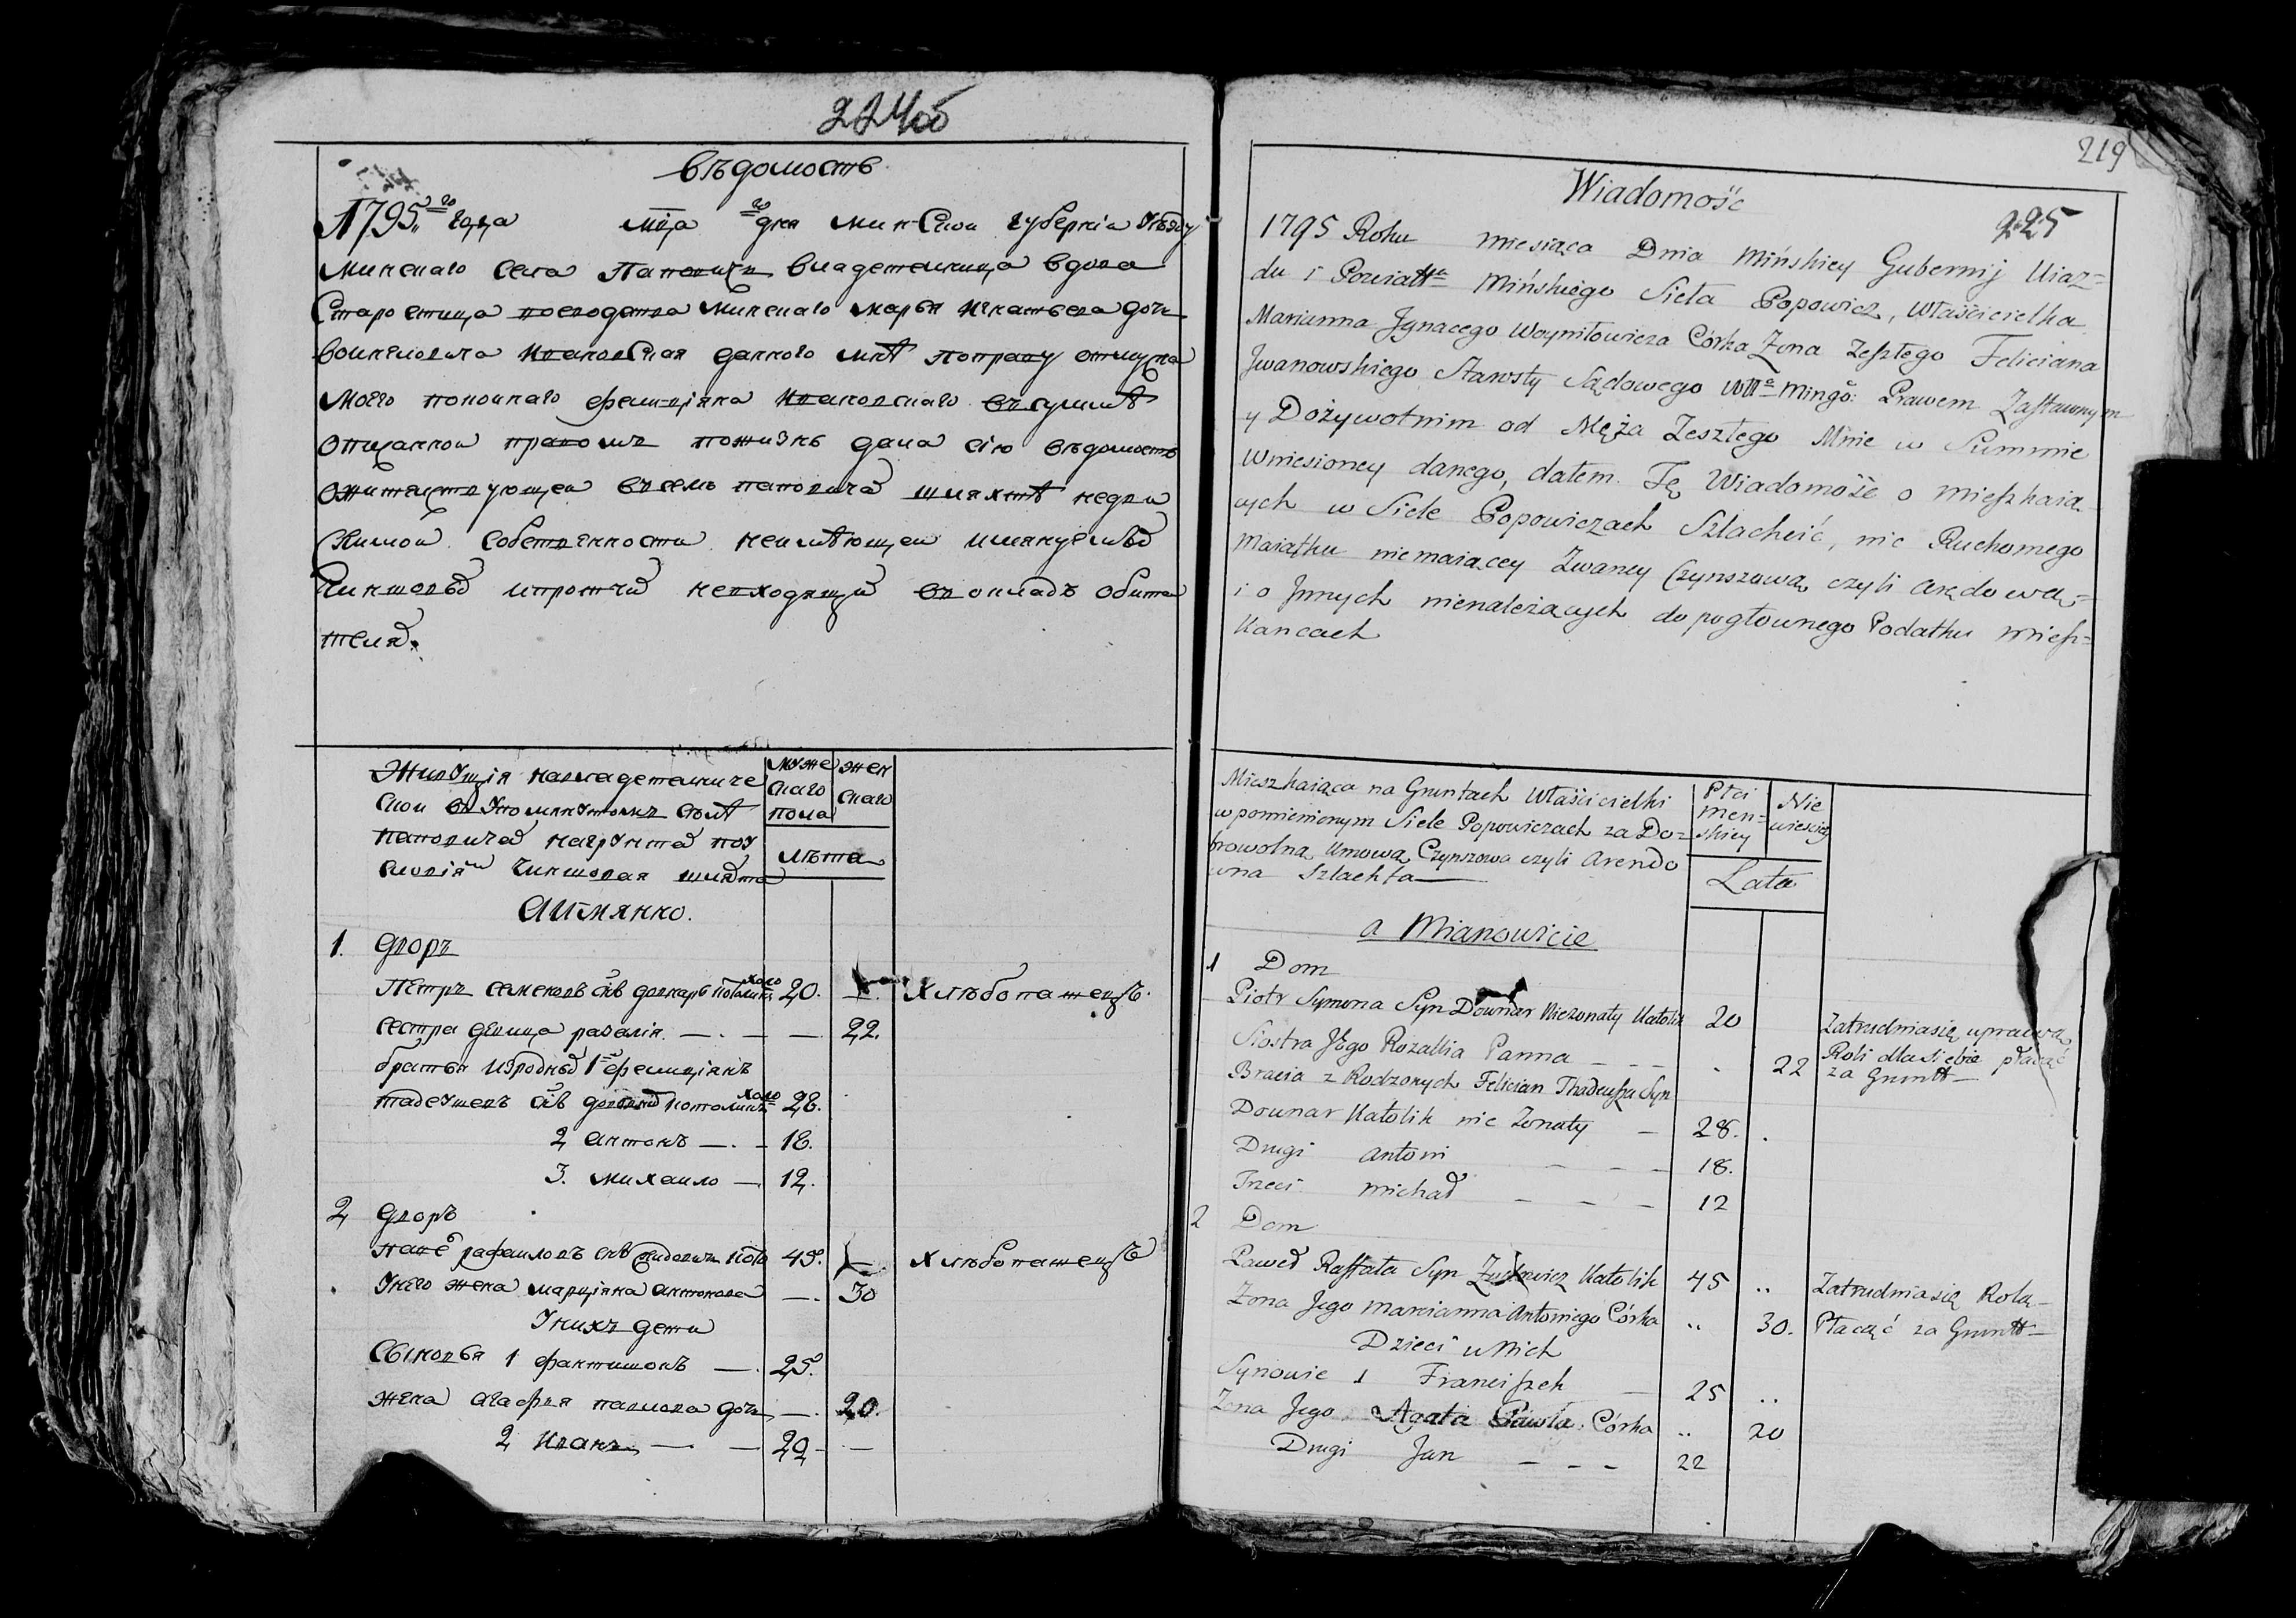 224об
Вѣдомость
1795го года мца го дня Минской губернїи уѣзду
Минскаго села Паповичъ владетелница вдова
Старостица воеводства Минскаго Марья Игнатьева дочь
Воиниловича Ивановская данного мнѣ по праву
моего покоинаго Фелицїяна Ивановскаго въ суммѣ
описанной правомъ пожизнь дана сїю вѣдомость
о жителствующей въ селѣ Паповичахъ шляхтѣ недви
жимой собственности неимѣющей имянуемыхъ
чиншовыхъ и протчихъ невходящихъ въ окладъ обита
телях.
Живущїя на владетелниче
ской въ упомянутомъ селѣ
Паповичах на грунтах по у
словїям чиншовая шляхта
муже
скаго
пола
жен
скаго
лѣта
А имянно.
1. дворъ
Петръ Семеновъ снъ Довнаръ католикъ холо 20. — хлѣбопашецъ.
сестра девица Разалїя — 22.
братья изродных 1й Фелицїянъ
Тадеушевъ снъ католикъ холо 28.
2 Антонъ — 18.
3. Михаило — 12.
2 дворъ
Павел Рафаиловъ снъ като 45. — хлѣбопашецъ
у него жена Марцїяна Антонова — 30
у нихъ дети
сыновья 1 Франтишокъ — 25.
жена Агафия Павлова дочь — 20.
2 Иванъ — 22 —
219
225
Wiadomość
1795 Roku miesiąca Dnia Mińskiey Gubernij Uiaz=
du i Powiattu Mińskiego Sieła Popowicz, Właścicielka
Marianna Jgnacego Woyniłowicza Córka Żona Zeszłego Feliciana
Jwanowskiego Starosty Sądowego Wtt. Mingo: Prawem Zastawnym
y Dożywotnim od Męża Zeszłego Mnie w Summie
Wniesioney danego, datem Tę Wiadomość o mieszkaią
cych w Siele Popowiczach Szlachcić, nic Ruchomego
Maiątku niemaiącey Zwaney Czynszową czyli Arędową=
i o Jnnych nienależących do pogłownego Podatku miesz=
kancach
Mieszkaiąca na Gruntach Właścicielki
w pomienionym Siele Popowiczach za Do=
browolną Umową Czynszowa czyli Arendo
wna Szlachta —
Płci
men=
skiey
Nie
wiesciey
Lata
a Mianowicie
1 Dom
Piotr Symona Syn Downar Nieżonaty Katolik 20 Zatrudniasię uprawą
Siostra Jego Rozallia Panna — 22 Roli dla siebie płacąc
za Gruntt —
Bracia z Rodzonych Felician Thadeusza Syn
Dounar Katolik nie Żonaty — 28.
Drugi Antoni — 18.
Trzeci Michał — 12
2 Dom
Paweł Raffała Syn Katolik 45 .. Zatrudniasię Rolą —
Żona Jego Marcianna Antoniego Córka .. 30. Płacąć za Grunttt —
Dzieci u Nich
Synowie 1 Franciszek — 25 ..
Żona Jego Agata Pawła Córka .. 20
Drugi Jan — 22